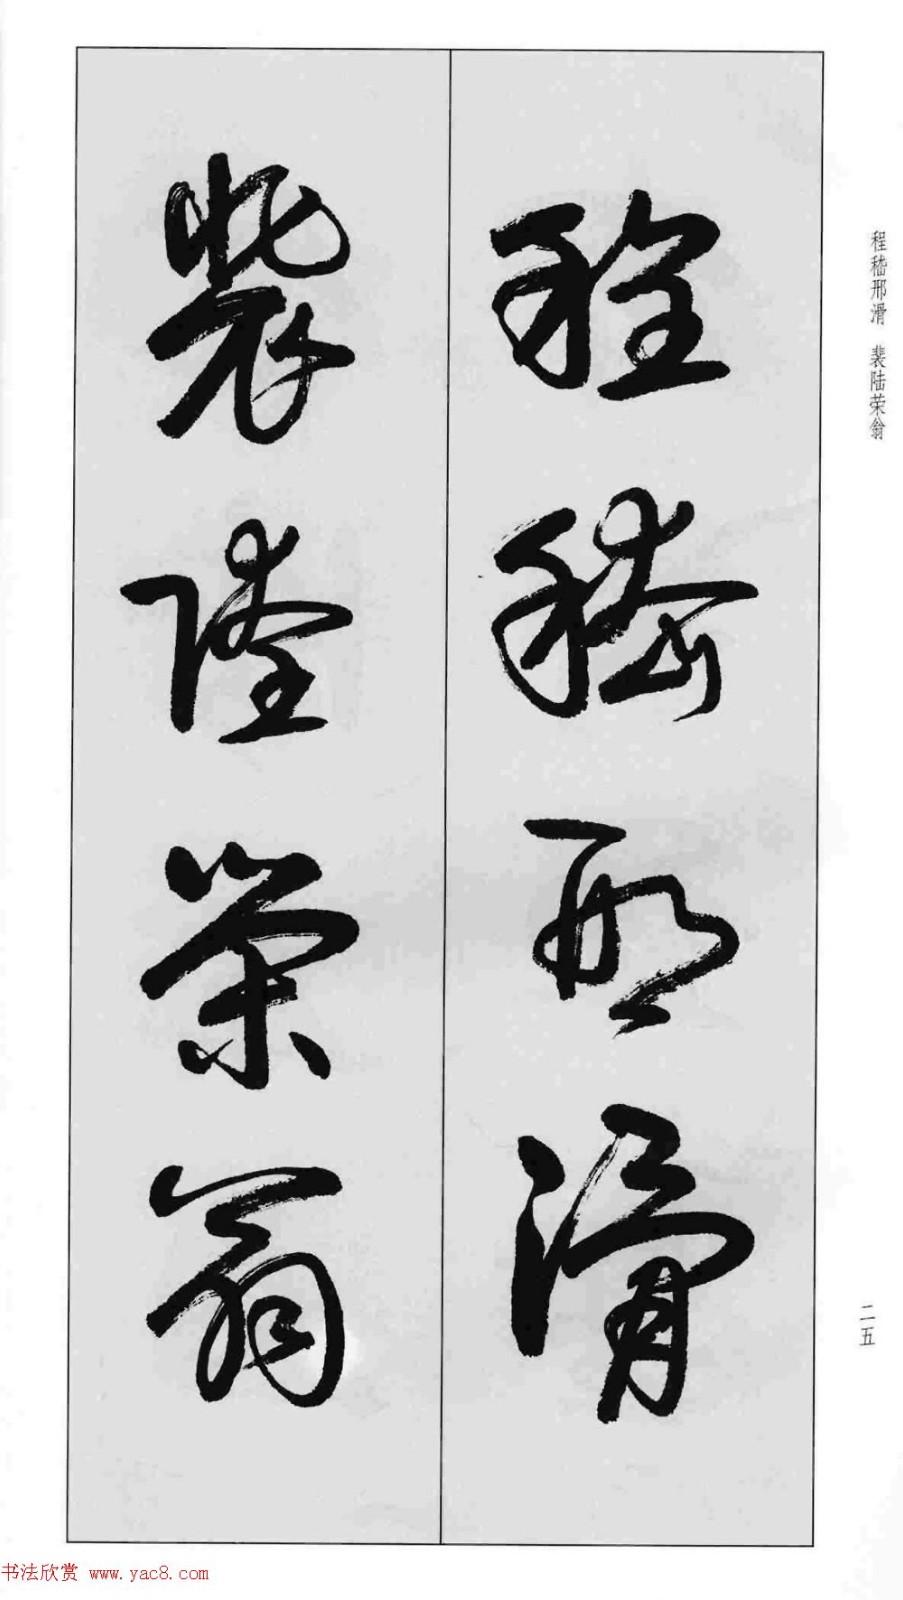 程嵇邢滑 裴陆荣翁
程嵇邢滑
裴陸榮翁
二五
书法欣赏 www.yac8.com